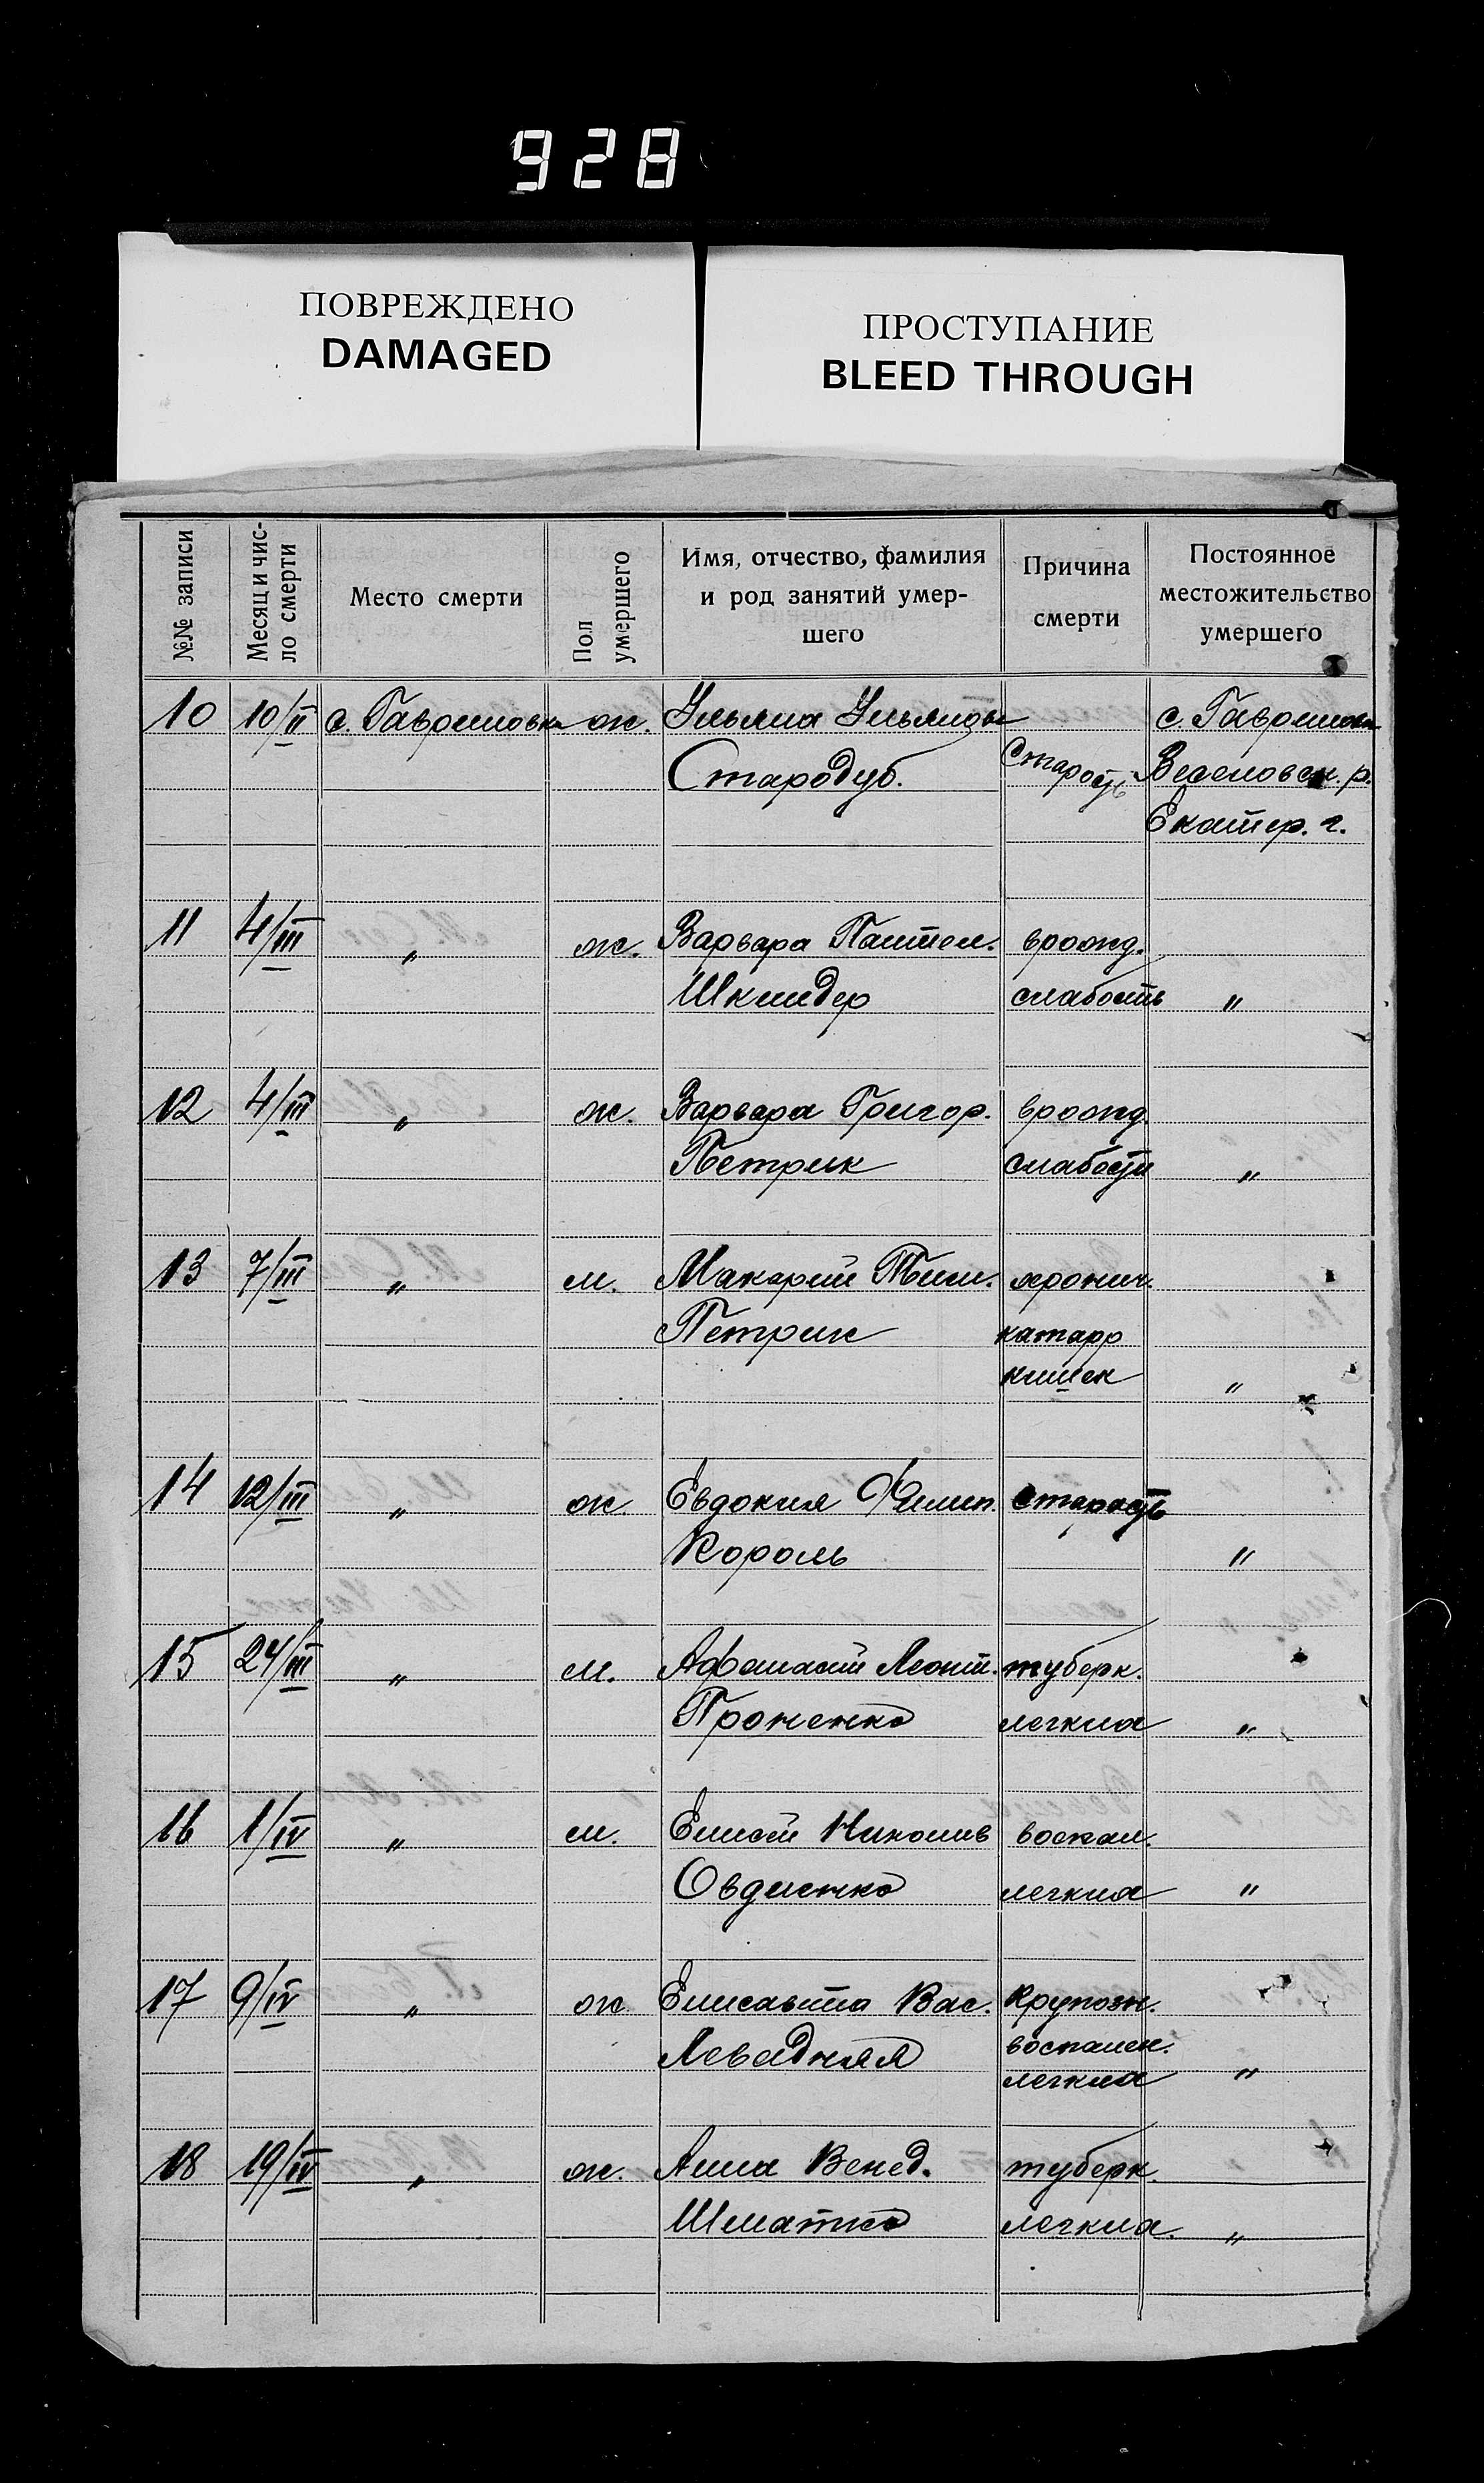 928
ПОВРЕЖДЕНО
DAMAGED
ПРОСТУПАНИЕ
BLEED THROUGH
№№ записи
Месяц и чис-
ло смерти
Место смерти
Пол
умершего
Имя, отчество, фамилия
и род занятий умер-
шего
Причина
смерти
Постоянное
местожительство
умершего
10 10/II с. Гавриловка ж. Ульяна Ульянова с. Гавриловка
Стародуб. Старость Веселовск. р.
Екатер. г.
11 4/III " ж. Варвара Пантел. врожд.
Шкиндер слабость "
12 4/III " ж. Варвара Григор. врожд.
Петрик слабости "
13 7/III " м. Макарий Тим. хронич.
Петрик катарр
кишек "
14 12/III " ж. Евдокия Филип. старость
Король "
15 24/III " м. Афанасий Леонт. туберк.
Проненко легких "
16 1/IV " м. Елисей Николив воспал.
Овдиенко легких "
17 9/IV " ж. Елисавета Вас. Крупозн.
Левадняя воспален.
легких "
18 19/IV " ж. Анна Венед. туберк.
Шматко легких. "